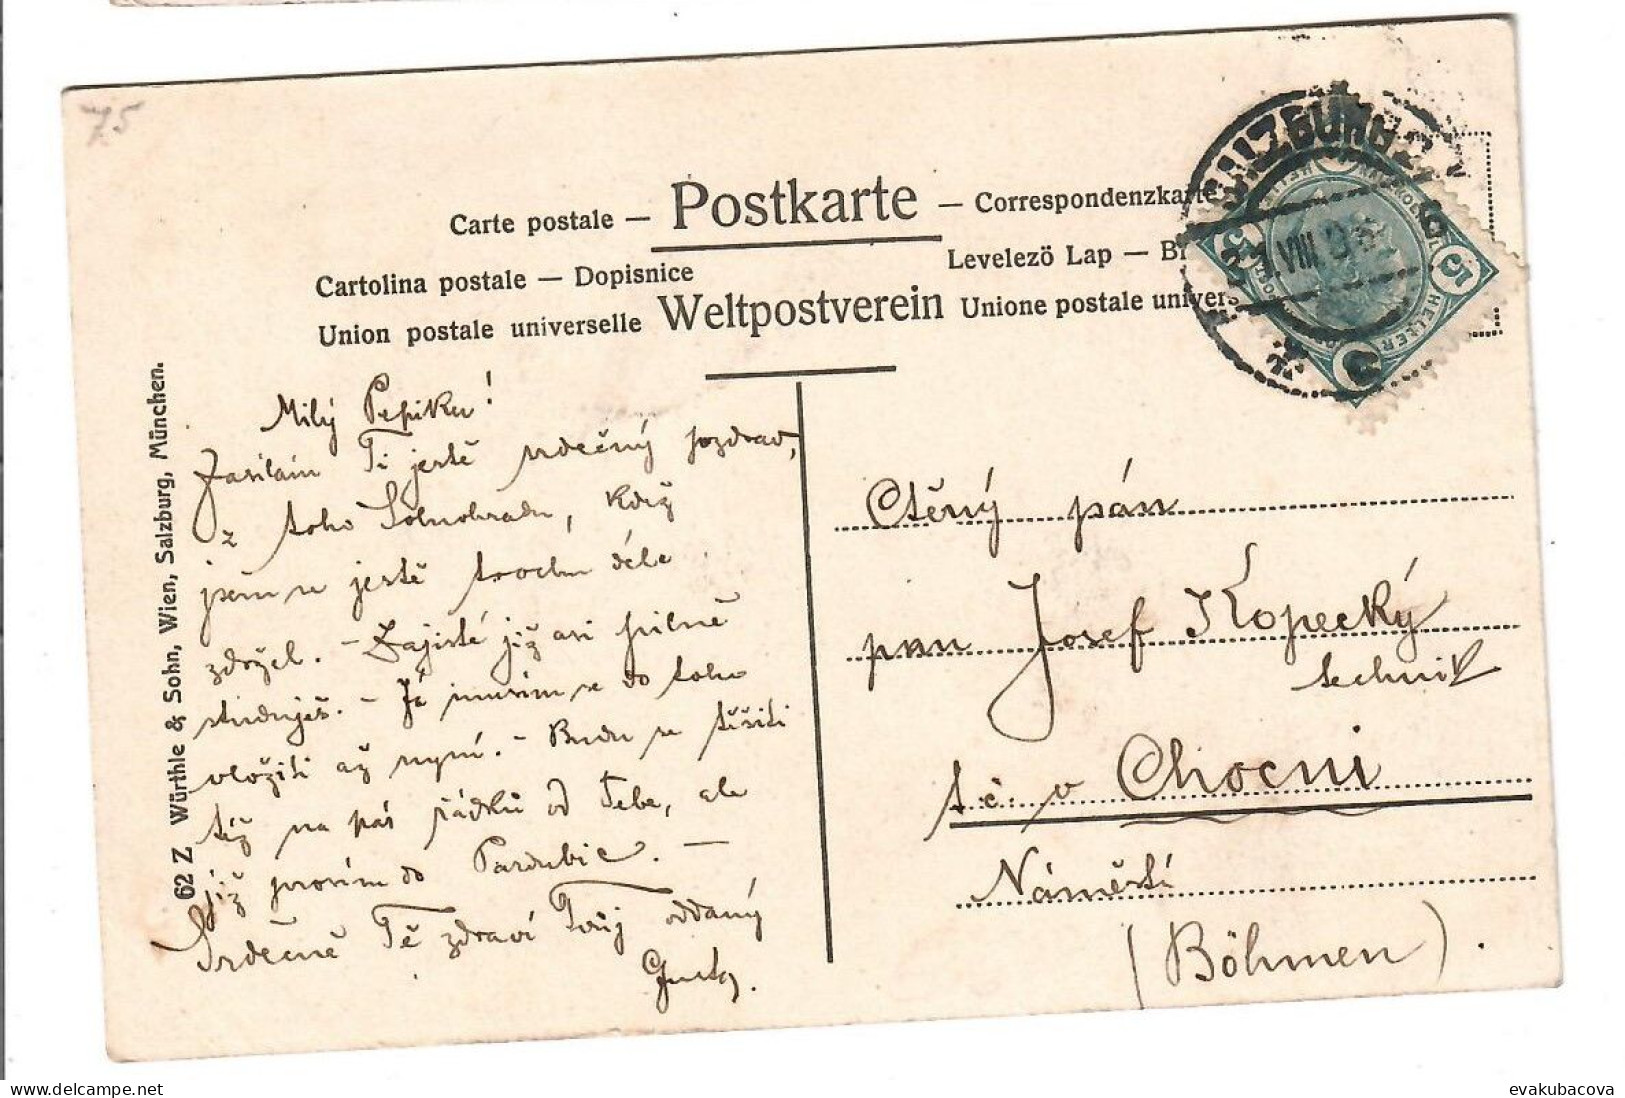 75
Carte postale — Postkarte — Correspondenzkarte
Cartolina postale — Dopisnice
Levelező Lap — B
Union postale universelle Weltpostverein Unione postale univers
SALZBURG 2
VIII 08
5 HELLER
62 Z Würthle & Sohn, Wien, Salzburg, München.
Milý Pepíku!
Zasílám Ti ještě srdečný pozdrav,
z toho Solnohradu, když
jsem se ještě trochu déle
zdržel. – Zajisté již asi pilně
studuješ. – Já musím se do toho
vložiti až nyní. – Budu se těšiti
též na pár řádků od Tebe, ale
již prosím do Pardubic. —
Srdečně Tě zdraví Tvůj oddaný
Gusta.
Ctěný pán
pan Josef Kopecký
technik
t. č. v Chocni
Náměstí
(Böhmen).
evakubacova